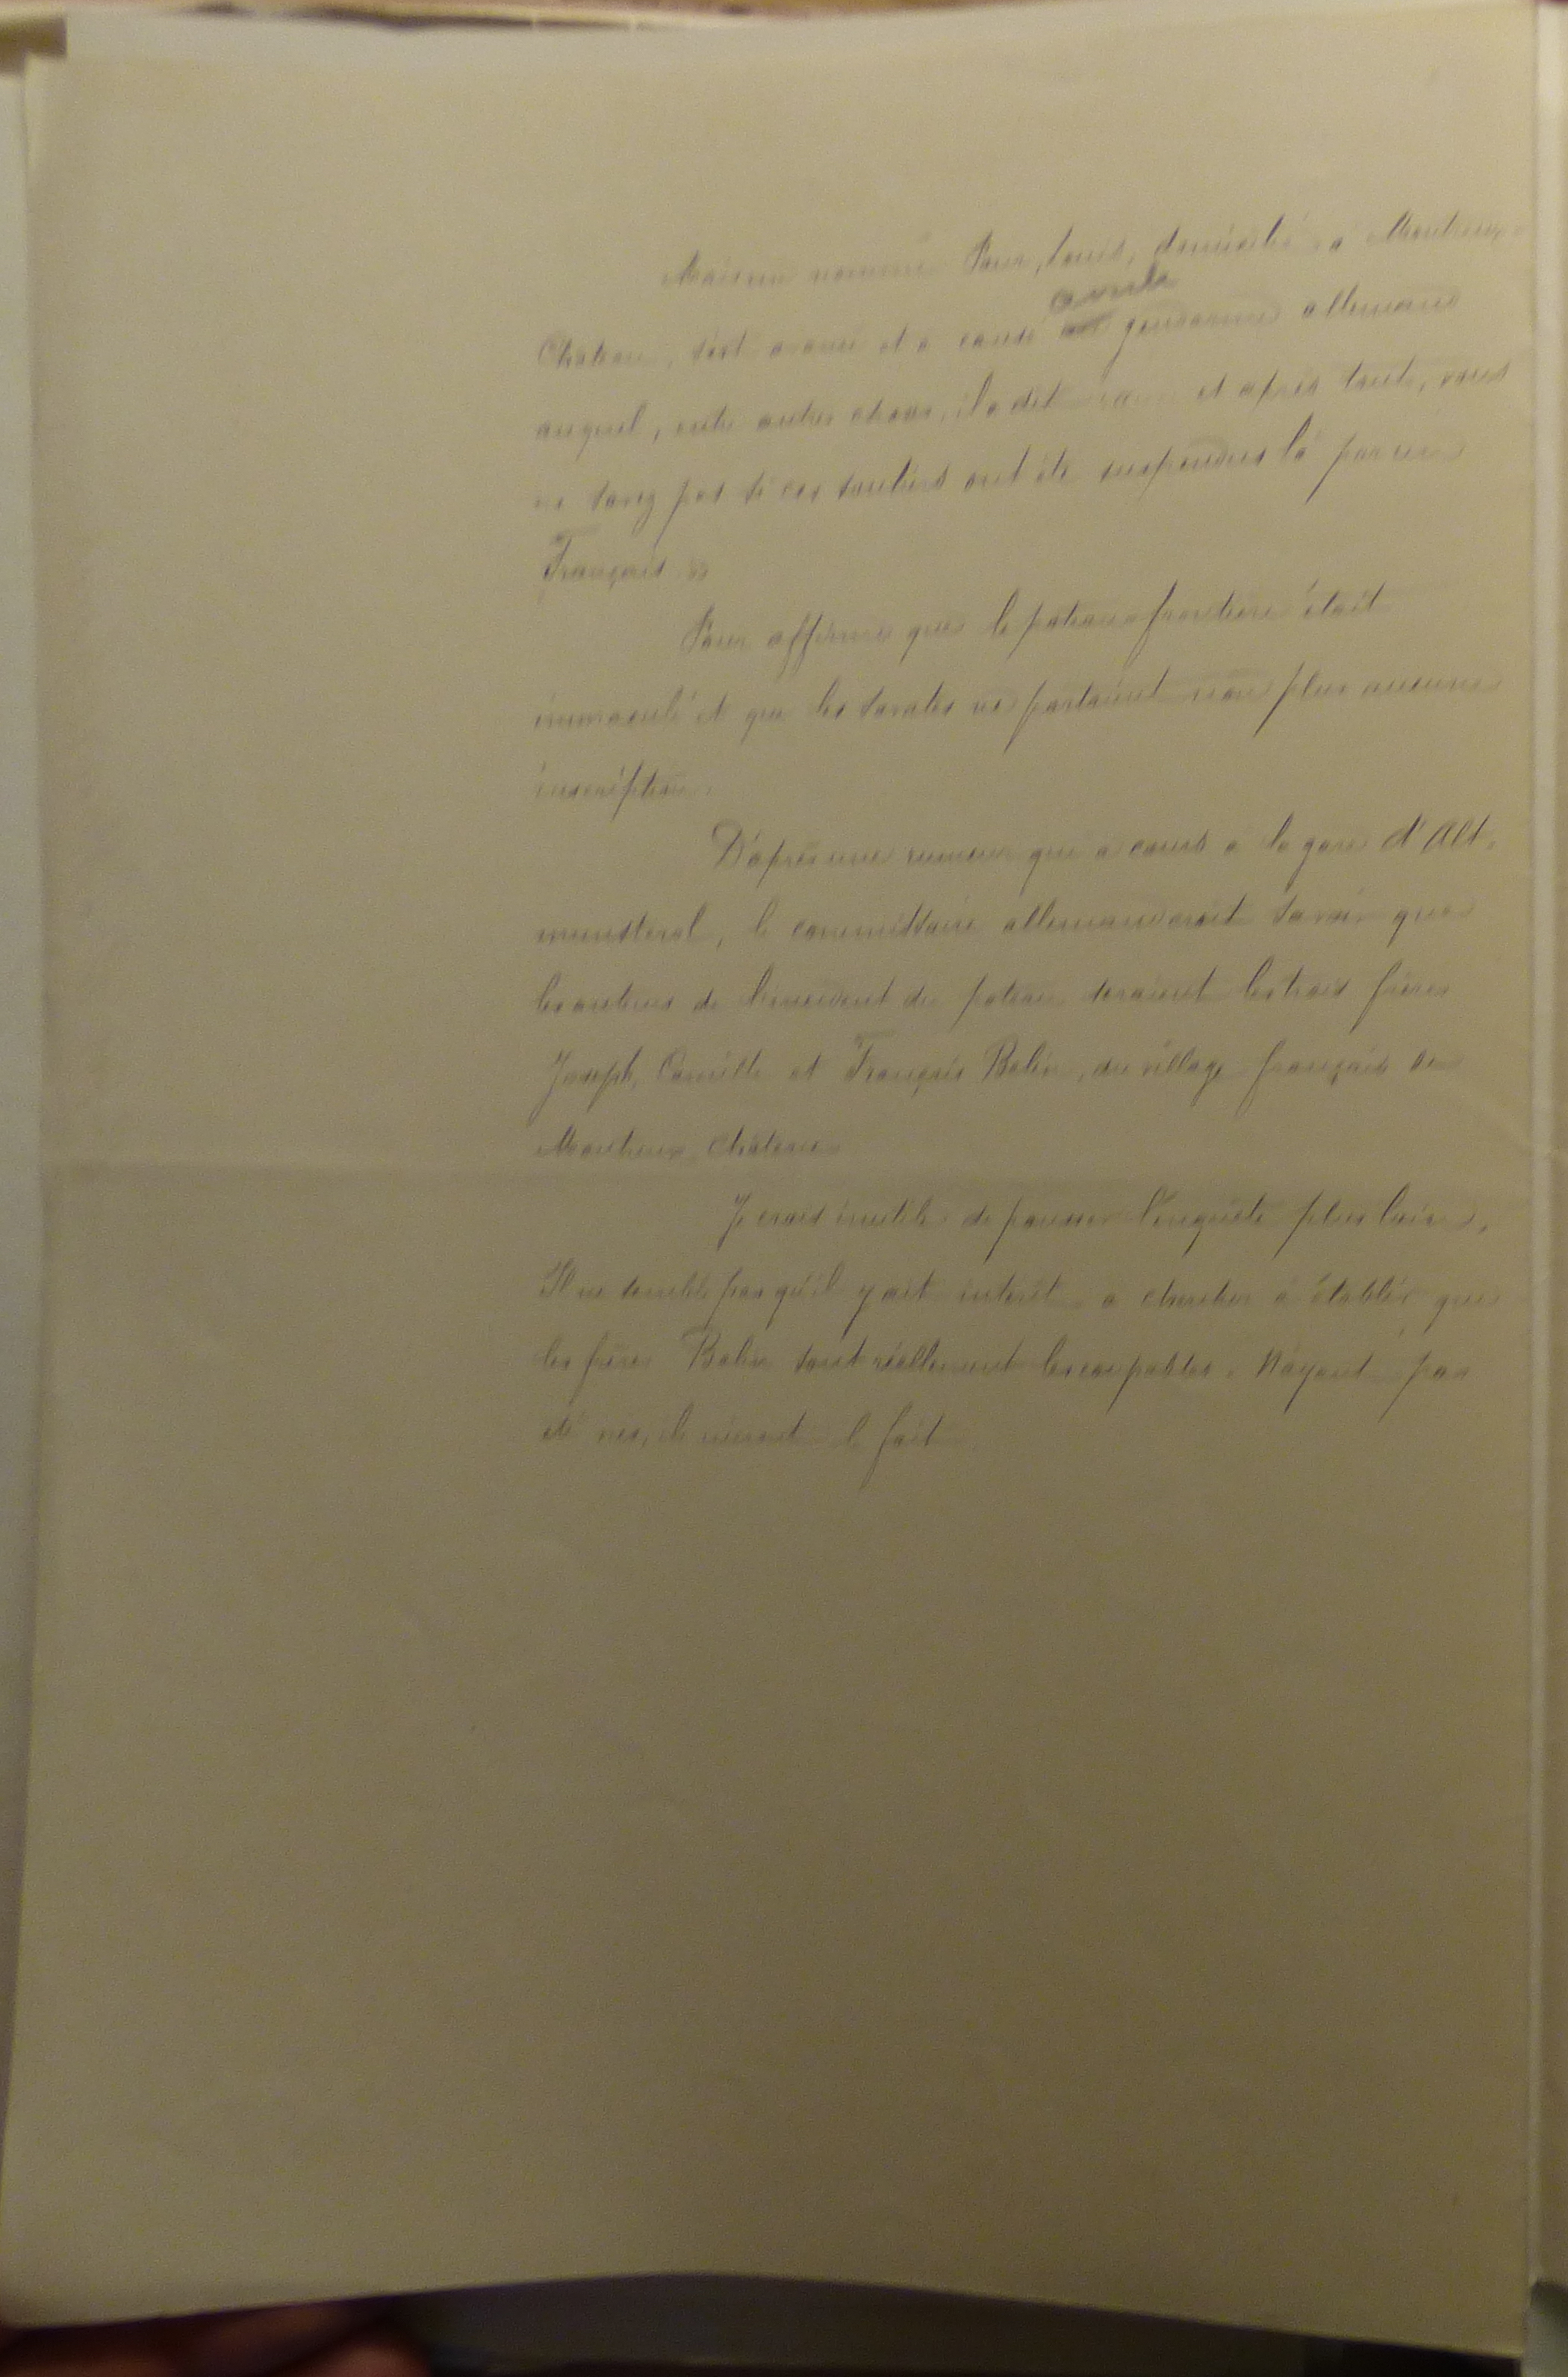 nommé Louis, domicilié à Montreux-
Château, s'est avancé et a causé avec le gendarme allemand
auquel, entre autres choses, il a dit et après tout, vous
ne savez pas si ces souliers ont été suspendus là par un
Français »
affirme que le poteau frontière était
immaculé et que les savates ne portaient non plus aucune
inscription.
D'après une rumeur qui a cours à la gare d'Alt-
munsterol, le commissaire allemand croit savoir que
les auteurs de l'incident du poteau seraient les trois frères
Joseph, Camille et François Belin, du village français de
Montreux-Château
Je crois inutile de pousser l'enquête plus loin.
Il ne semble pas qu'il y ait intérêt à chercher à établir que
les frères Belin sont réellement les coupables. N'ayant pas
été vus, ils nieront le fait